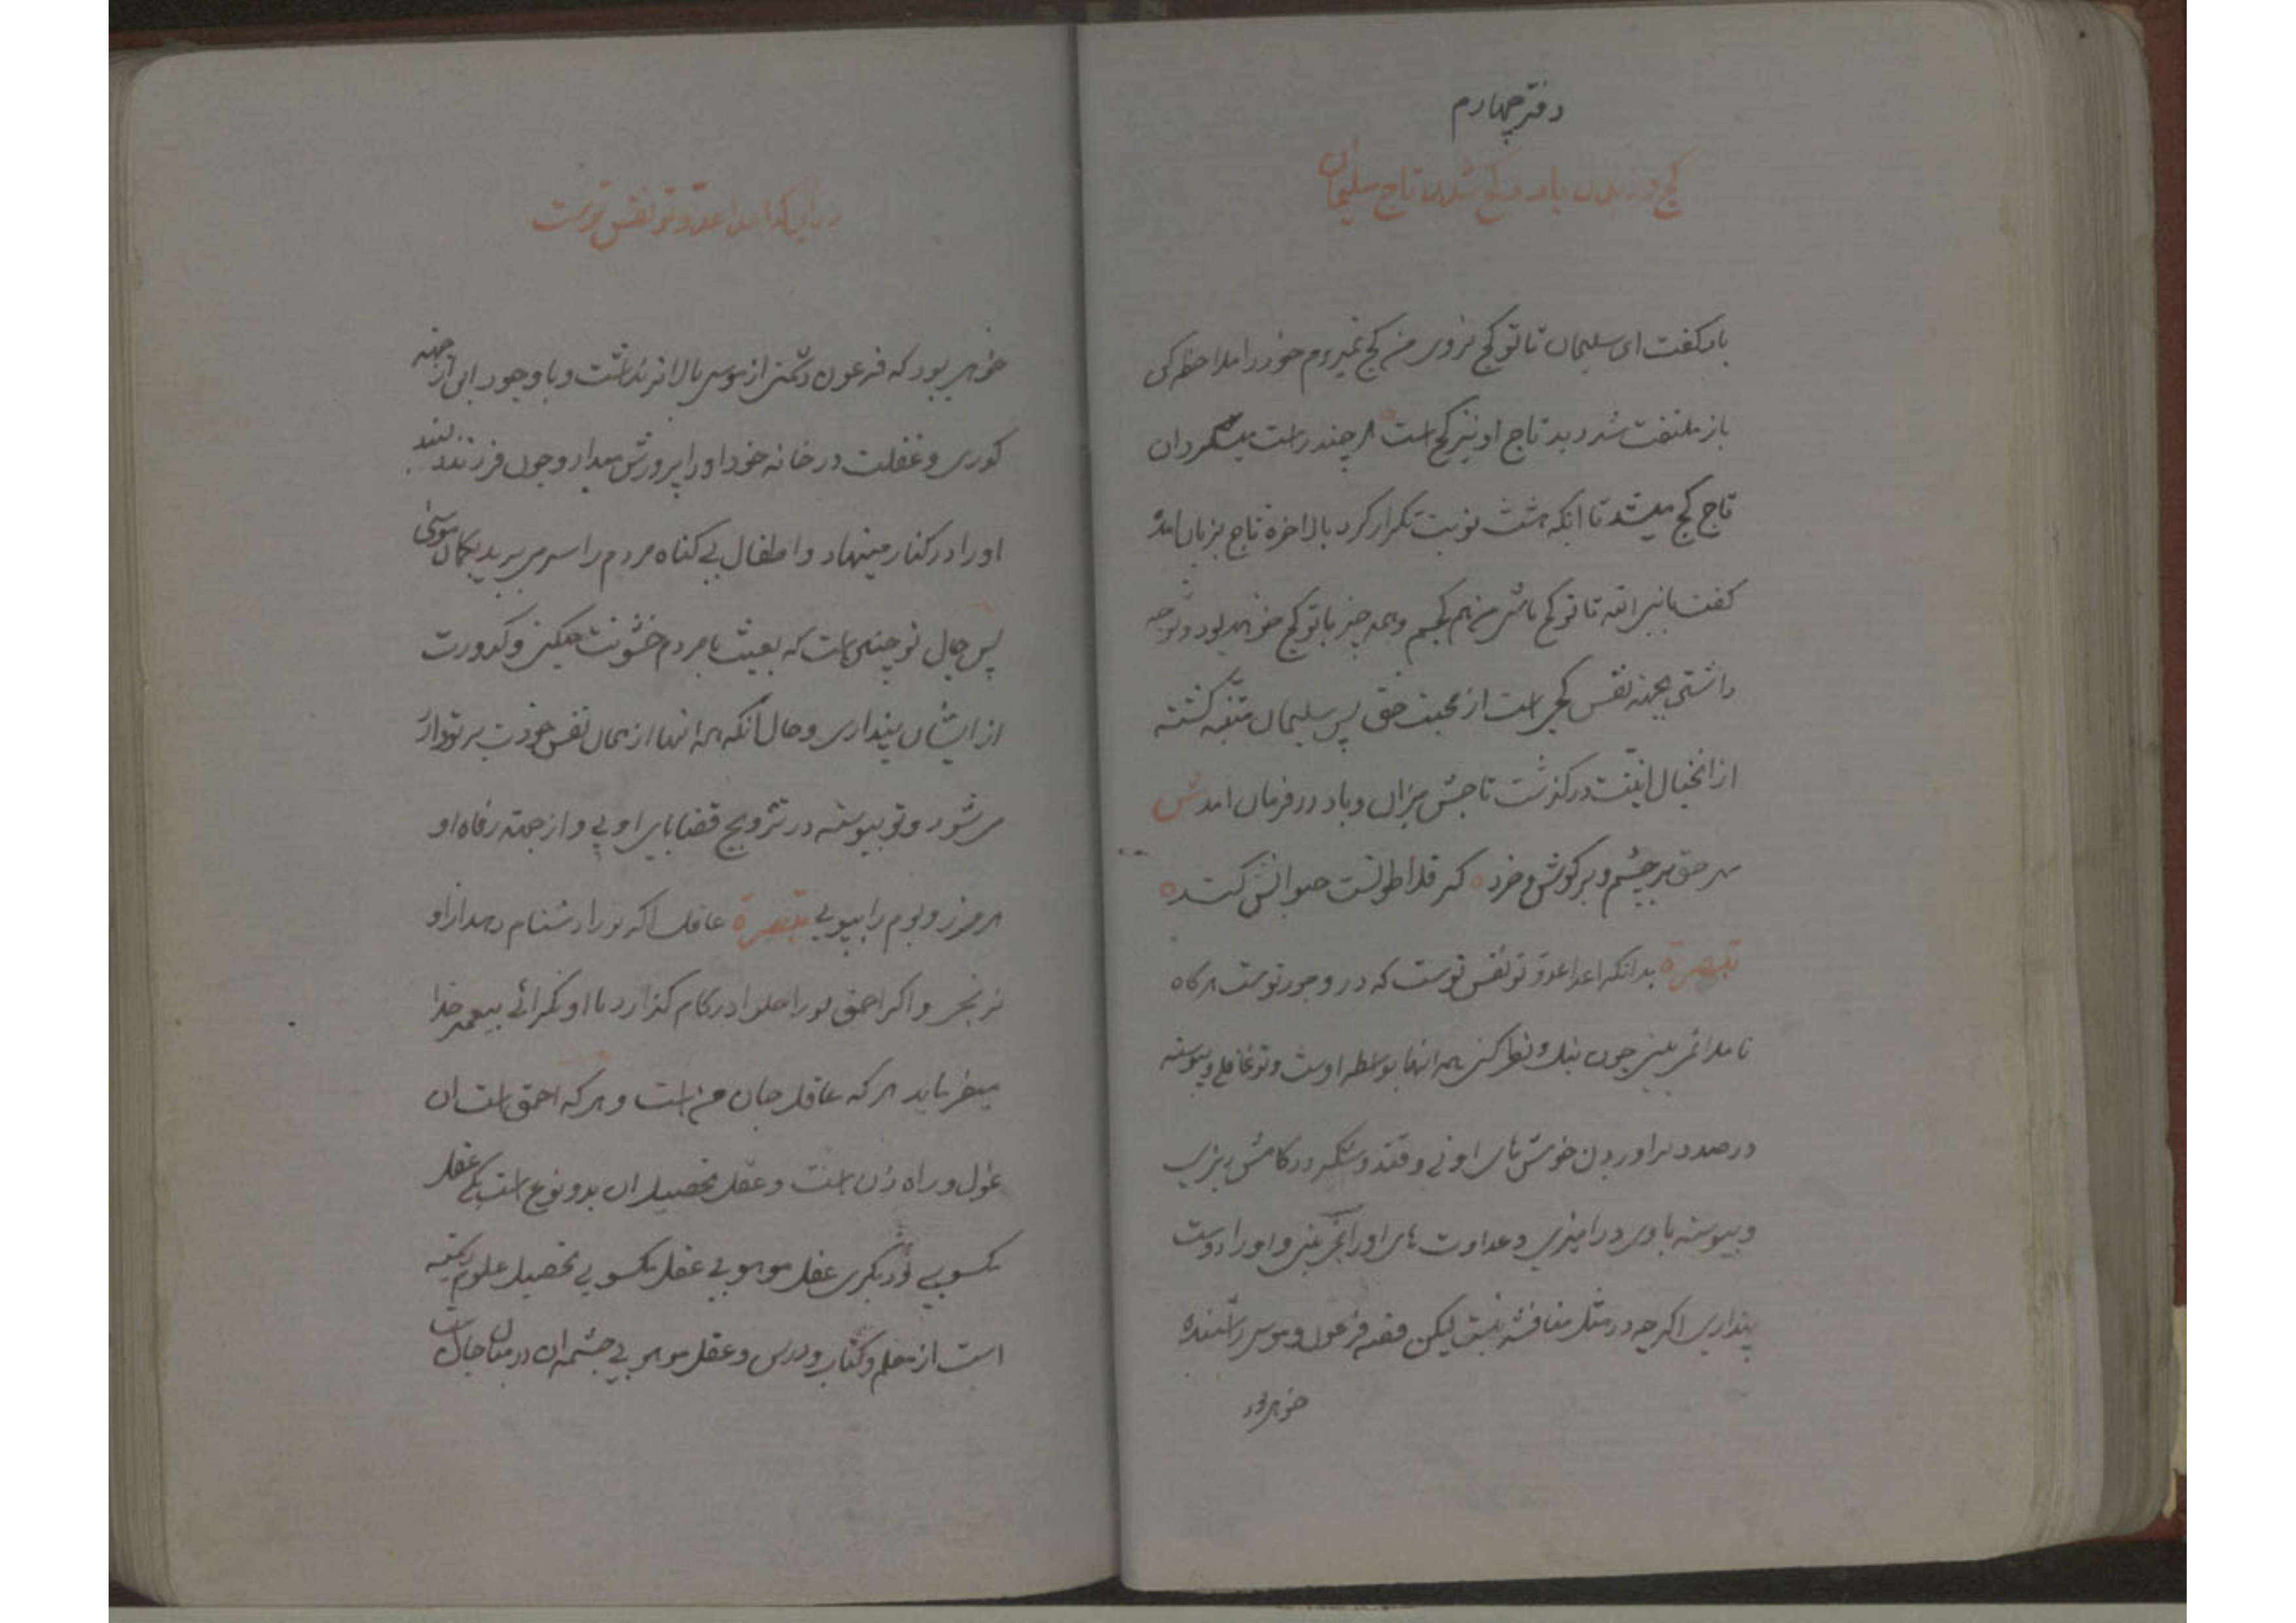 دفتر چهارم
کج وزیدن باد و کج شدن تاج سلیمان
باد کفت ای سلیمان تا تو کج نروی من کج نمیروم خود را ملاحظه کن
باز ملتفت شد دید تاج او نیز کج است هر چند راست میکردان
تاج کج میشد تا انکه هشت نوبت تکرار کرد بالاخره تاج بزبان امد
کفت یا نبی الله تا تو کج باشی من هم کجم و همه چیز با تو کج خواهد بود و توجه
داشتی بجهته نفس کجی است از محبت حق پس سلیمان متنبه کشته
از انخیال درکذشت تاجش میزان و باد در فرمان امد ش
مهر حق بر چشم و بر کوش و خرد ه کر فلاطونست حیوانش کند ه
تبصرة بدانکه اعدا عدو تو نفس توست که در وجود توست هر کاه
ناملائمی بینی چون نیک و نظر کنی همه انها بواسطه اوست و تو غافلی و پیوسته
در صدد براوردن خواهش های اوئی و قند و شکر در کامش ریزی
و پیوسته با وی در امیزی و عداوت های او را نمی بینی و او را دوست
پنداری اکرچه در مثل مناقشه نیست لیکن قصه فرعون و موسی را شنیده
خواهی بود
در اینکه اعدا عدو تو نفس توست
خواهی بود که فرعون دشمنی از موسی بالاتر نداشت و با وجود این از جهته
کوری و غفلت در خانه خود او را پرورش میداد و چون فرزند دلبند
او را در کنار مینهاد و اطفال بی کناه مردم را سر می برید بکمان موسی
پس حال تو چنین است که بعبث با مردم خشونت میکنی و کدورت
از ایشان پنداری و حال آنکه همه انها از همان نفس خودت بر تو وارد
می شود و تو پیوسته در ترویج قضایای اوئی و از جهته رفاه او
هر مرز و بوم را پیویی تبصرة عاقل اکر تو را دشنام دهد از او
مرنج و اکر احمق تو را حلوا در کام کذارد با او مکرای پیغمبر خدا
میفرماید هر که عاقل جان من است و هر که احمق است ان
غول و راه زن است و عقل تحصیل ان بدو نوع است یکی عقل
مکسوبی و دیکری عقل موهوبی عقل مکسوبی تحصیل علوم
است از معلم و کتاب و درس و عقل موهوبی چشمه ان در میان جان